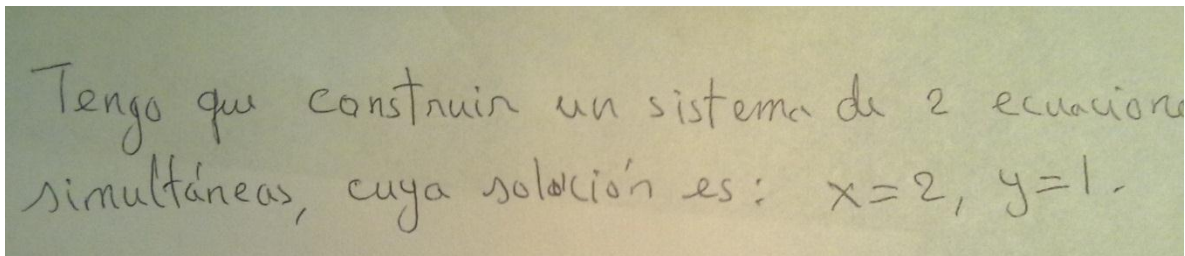 Tengo que construir un sistema de 2 ecuacione
simultáneas, cuya solución es: x=2, y=1.